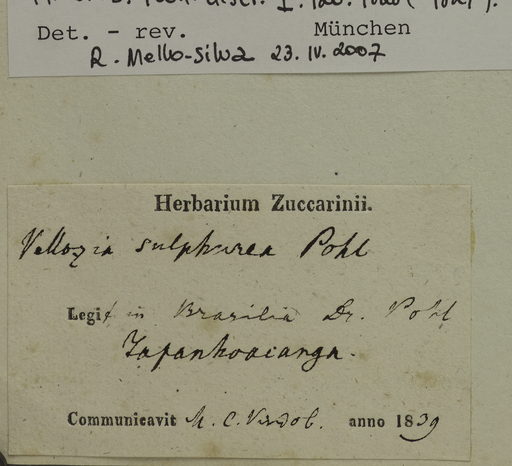 Det. - rev. München
R. Mello-Silva 23.IV.2007
Herbarium Zuccarinii.
Vellozia sulphurea Pohl
Legit in Brasilia Dr. Pohl
Tapanhoacanga.
Communicavit M. C. Vindob. anno 1839